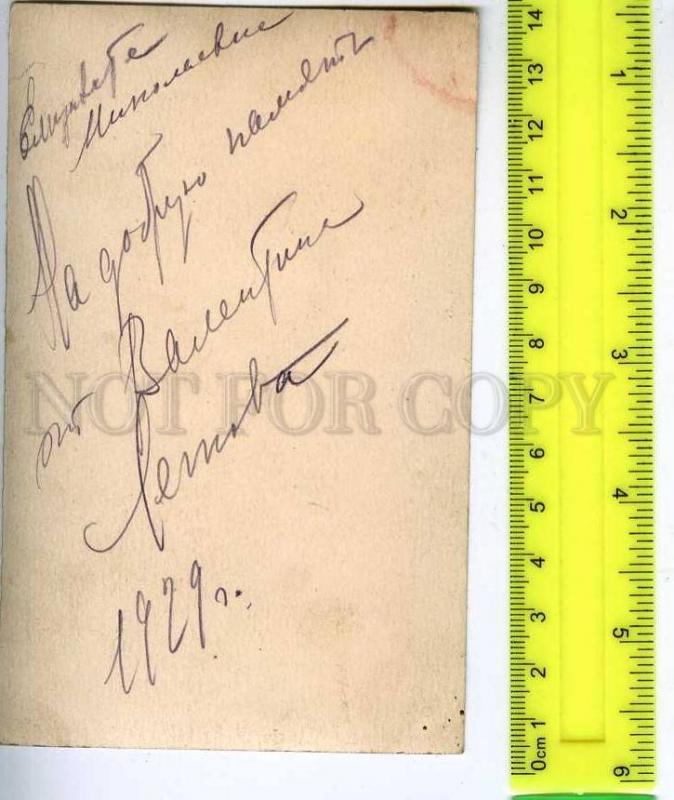 Елизавете
Николаевне
На добрую память
от Валентина
1929 г.
NOT FOR COPY
0cm 1 2 3 4 5 6 7 8 9 10 11 12 13 14
1 2 3 4 5 6